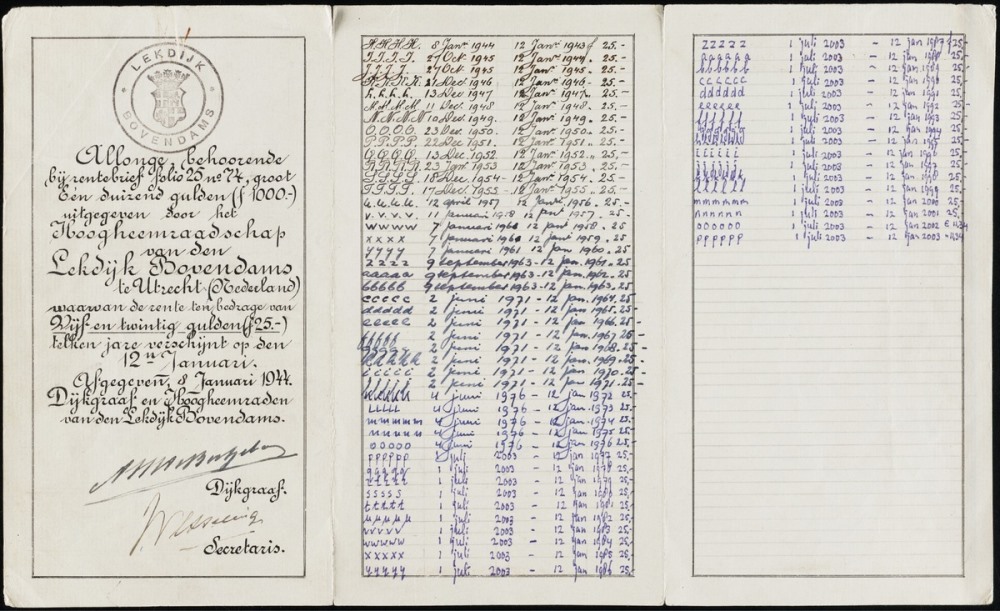 LEKDIJK BOVENDAMS
Allonge, behoorende
bij rentebrief folio 25 no 74, groot
Één duizend gulden (ƒ 1000.-)
uitgegeven door het
Hoogheemraadschap
van den
Lekdijk Bovendams
te Utrecht (Nederland)
waarvan de rente ten bedrage van
Vijf en twintig gulden (ƒ 25.-)
telken jare verschijnt op den
12n Januari.
Afgegeven, 8 Januari 1944.
Dijkgraaf en Hoogheemraden
van den Lekdijk Bovendams.
Dijkgraaf.
Secretaris.
H.H.H.H. 8 Jan. 1944 12 Jan. 1943 ƒ 25.-
I.I.I.I. 27 Oct 1945 12 Jan. 1944. 25.-
J.J.J.J. 27 Oct 1945 12 Jan. 1945. 25.-
K.K.K.K. 21 Dec 1946 12 Jan. 1946. 25.-
L.L.L.L. 13 Dec 1947 12 Jan. 1947. 25.-
M.M.M.M. 11 Dec. 1948 12 Jan. 1948. 25.-
N.N.N.N. 10 Dec. 1949. 12 Jan. 1949. 25.-
O.O.O.O. 23 Dec. 1950. 12 Jan. 1950. 25.-
P.P.P.P. 22 Dec. 1951. 12 Jan. 1951. 25.-
Q.Q.Q.Q. 13 Dec. 1952. 12 Jan. 1952. 25.-
R.R.R.R. 23 Jan 1953 12 Jan. 1953. 25.-
S.S.S.S. 18 Dec. 1954. 12 Jan. 1954. 25.-
T.T.T.T. 17 Dec. 1955 12 Jan. 1955. 25.-
u.u.u.u. 12 april 1957 12 Jan. 1956. 25.-
v.v.v.v. 11 januari 1958 12 jan 1957. 25.-
wwww 7 januari 1960 12 jan 1958. 25.-
xxxx 7 januari 1960 12 jan 1959. 25.-
yyyy 7 januari 1961 12 jan 1960. 25.-
zzzz 9 september 1963 - 12 jan. 1961. 25.-
aaaaa 9 september 1963 - 12 jan. 1962. 25.-
bbbbb 9 september 1963 - 12 jan. 1963. 25.-
ccccc 2 juni 1971 - 12 jan. 1964. 25.-
ddddd 2 juni 1971 - 12 jan 1965. 25.-
eeeee 2 juni 1971 - 12 jan 1966. 25.-
fffff 2 juni 1971 - 12 jan 1967. 25.-
ggggg 2 juni 1971 - 12 jan 1968. 25.-
hhhhh 2 juni 1971 - 12 jan 1969. 25.-
iiiii 2 juni 1971 - 12 jan 1970. 25.-
jjjjj 2 juni 1971 - 12 jan 1971. 25.-
kkkkk 4 juni 1976 - 12 jan 1972 25.-
lllll 4 juni 1976 - 12 jan 1973 25.-
mmmmm 4 juni 1976 - 12 jan 1974 25.-
nnnnn 4 juni 1976 - 12 jan 1975 25.-
ooooo 4 juni 1976 - 12 jan 1976 25,-
ppppp 1 juli 2003 - 12 jan 1977 25,-
qqqqq 1 juli 2003 - 12 jan 1978 25,-
rrrrr 1 juli 2003 - 12 jan 1979 25,-
sssss 1 juli 2003 - 12 jan 1980 25,-
ttttt 1 juli 2003 - 12 jan 1981 25,-
uuuuu 1 juli 2003 - 12 jan 1982 25,-
vvvvv 1 juli 2003 - 12 jan 1983 25,-
wwwww 1 juli 2003 - 12 jan 1984 25,-
xxxxx 1 juli 2003 - 12 jan 1985 25,-
yyyyy 1 juli 2003 - 12 jan 1986 25,-
zzzzz 1 juli 2003 - 12 jan 1987 ƒ 25,-
aaaaaa 1 juli 2003 - 12 jan 1988 25,-
bbbbbb 1 juli 2003 - 12 jan 1989 25,-
cccccc 1 juli 2003 - 12 jan 1990 25,-
dddddd 1 juli 2003 - 12 jan 1991 25,-
eeeeee 1 juli 2003 - 12 jan 1992 25,-
ffffff 1 juli 2003 - 12 jan 1993 25,-
gggggg 1 juli 2003 - 12 jan 1994 25,-
hhhhhh 1 juli 2003 - 12 jan 1995 25,-
iiiiii 1 juli 2003 - 12 jan 1996 25,-
jjjjjj 1 juli 2003 - 12 jan 1997 25,-
kkkkkk 1 juli 2003 - 12 jan 1998 25,-
llllll 1 juli 2003 - 12 jan 1999 25,-
mmmmmm 1 juli 2003 - 12 jan 2000 25,-
nnnnnn 1 juli 2003 - 12 jan 2001 25,-
oooooo 1 juli 2003 - 12 jan 2002 € 11,34
pppppp 1 juli 2003 - 12 jan 2003 - 11,34